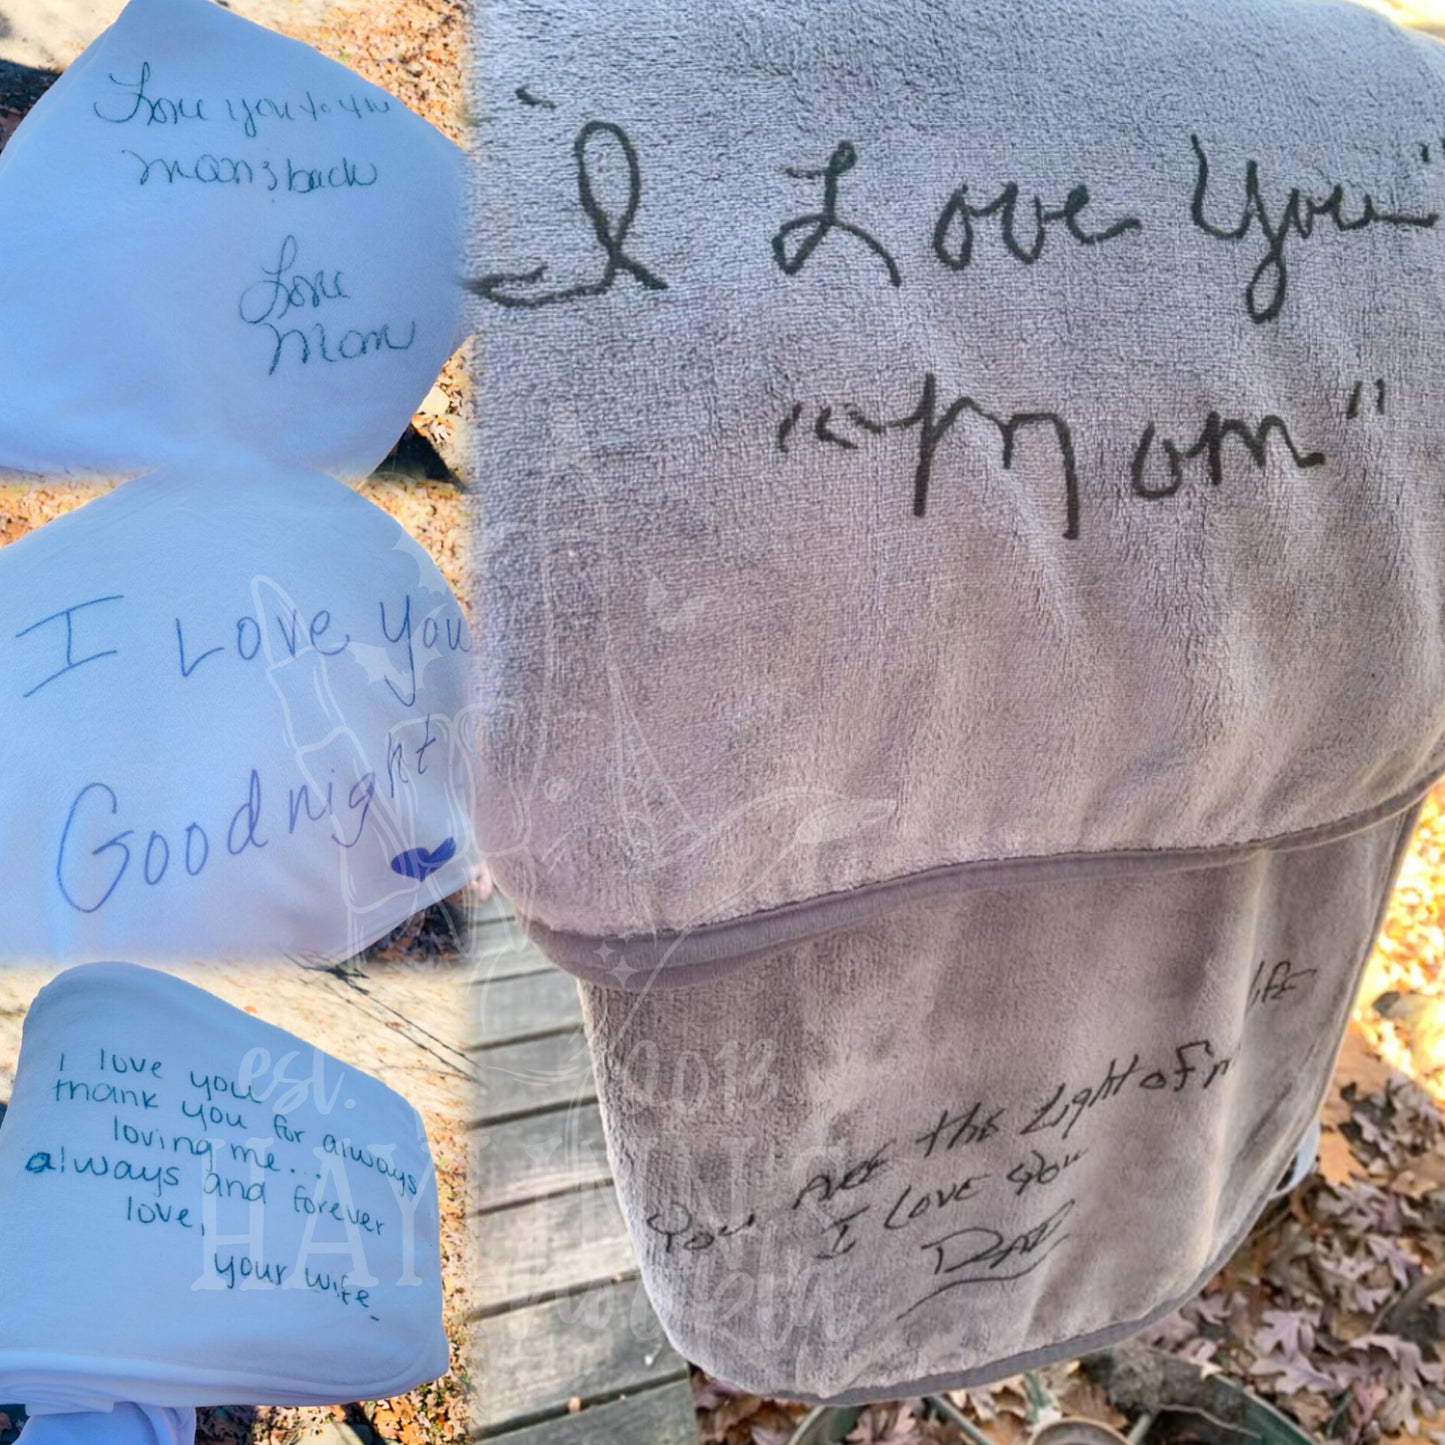 Love you to the
moon & back
Love
Mom
I Love You
Goodnight
I love you
thank you for always
loving me...
always and forever
love,
your wife
"I Love You"
"Mom"
You ARE the Light of m
life
I LOVE you
DAD
est. 2013
HAYLYNN'S